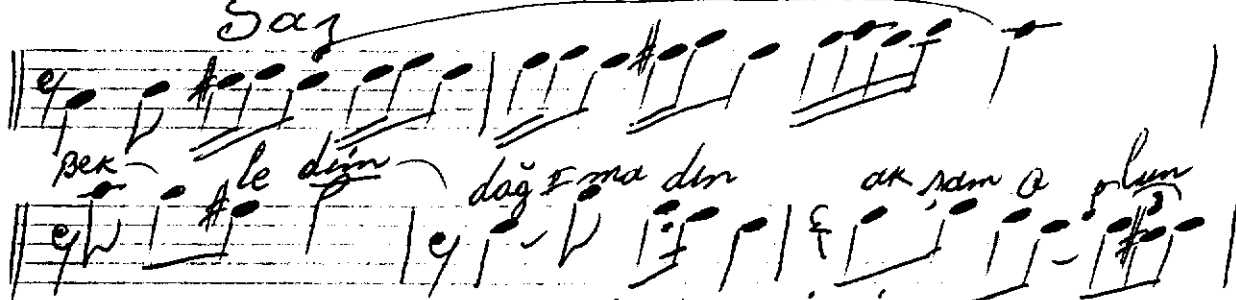 Saz
Bek le dim dağıma dın akşam o lun
3